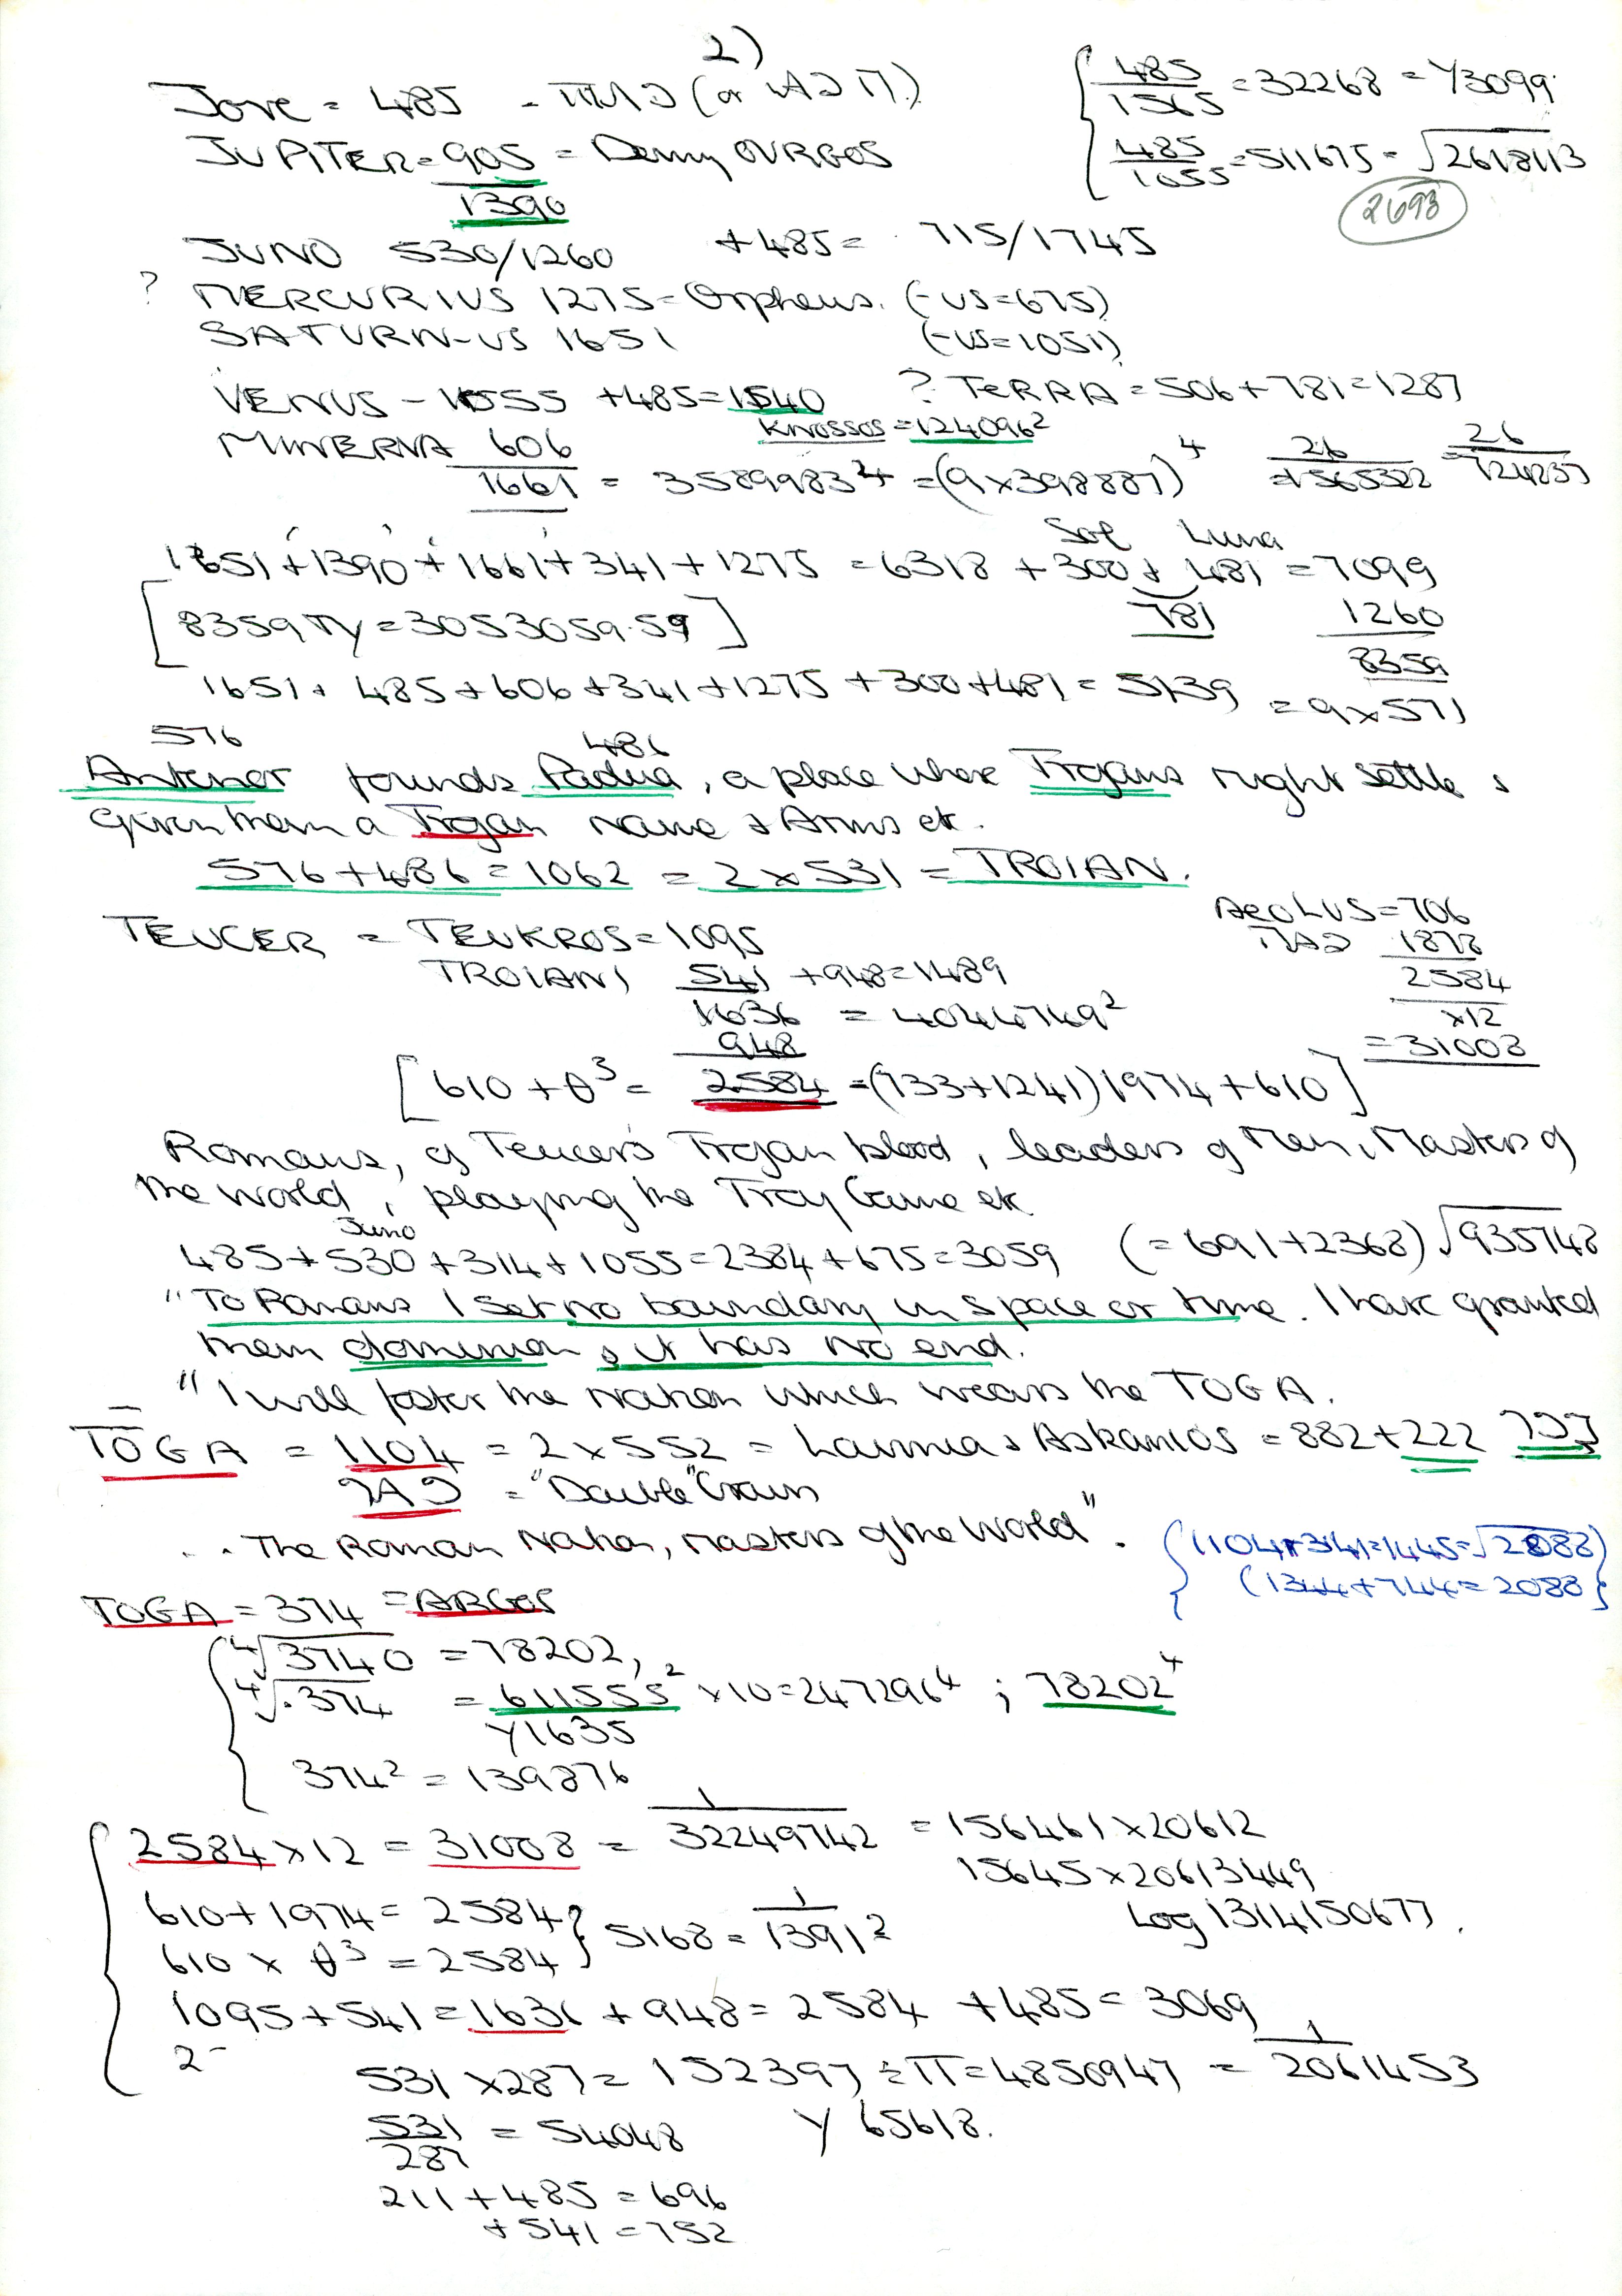 2)
Jove = 485
JUPITER = 905 = Demy OURGOS
1390
485/1565 = 32268 = Y3099
485/1055 = 511675 = √2618113
2693
JUNO 530/1260 +485 = 715/1745
? MERCURIUS 1275 = Orpheus. (-US=675)
SATURN-US 1651 (-US=1051)
VENUS - 1055 +485=1540 ? TeRRA = 506+781=1287
KNOSSOS = 124096²
MINERVA 606
1661 = 3589983⁴ = (9x398887)⁴
Sol Luna
1651 + 1390 + 1661 + 341 + 1275 = 6318 + 300 + 481 = 7099
781 1260
[8359πy = 3053059.59] 8359
1651 + 485 + 606 + 341 + 1275 + 300 + 481 = 5139 = 9x571
576 486
Antenor founds Padua, a place where Trojans might settle &
given them a Trojan Name & Arms etc.
576+486=1062 = 2x531 = TROIAN.
TEUCER = TEUKROS = 1095
TROIANI 541 +948=1489
1636 = 4044749²
948
AEOLUS = 706
1878
2584
x12
= 31008
[610 + θ³ = 2584 = (733+1241) 1974 + 610]
Romans, of Teucer's Trojan blood, leaders of Men, Masters of
the world, playing the Troy Game etc
Juno
485+530+314+1055=2384+675=3059 (=691+2368) √935748
"To Romans I set no boundary in space or time. I have granted
them dominion, & it has no end.
"I will foster the Nation which wears the TOGA.
TOGA = 1104 = 2x552 = Lavinia & Askanios = 882+222
= "Double" Crown
... The Roman Nation, masters of the World".
{(1104+341=1445=√2088)
(1344+744=2088)}
TOGA = 374 = ARGOS
⁴√3740 = 78202,
⁴√.374 = 611555² x10=247296⁴ ; 78202⁴
Y1635
374² = 139876
2584x12 = 31008 = 1/32249742 = 156461x20612
15645x20613449
Log 1314150677.
610+1974 = 2584
610 x θ³ = 2584 } 5168 = 1/1391²
1095+541 = 1636 + 948 = 2584 + 485 = 3069
2-
531 x287 = 152397 ÷ π = 4850947 = 1/2061453
531/287 = 54048 Y 65618.
211+485 = 696
+541 = 752